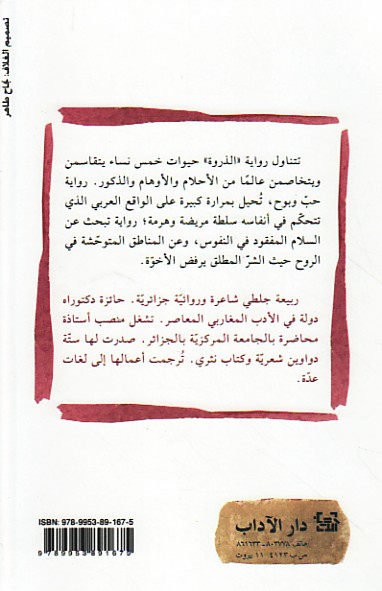 تصميم الغلاف: نجاح طاهر
تتناول رواية «الذروة» حيوات خمس نساء يتقاسمن
ويتخاصمن عالمًا من الأحلام والأوهام والذكور. رواية
حبّ وبوح، تُحيل بمرارة كبيرة على الواقع العربي الذي
تتحكّم في أنفاسه سلطة مريضة وهرمة؛ رواية تبحث عن
السلام المفقود في النفوس، وعن المناطق المتوحّشة في
الروح حيث الشرّ المطلق يرفض الأخوّة.
ربيعة جلطي شاعرة وروائيّة جزائريّة. حائزة دكتوراه
دولة في الأدب المغاربي المعاصر. تشغل منصب أستاذة
محاضرة بالجامعة المركزيّة بالجزائر. صدرت لها ستّة
دواوين شعريّة وكتاب نثري. تُرجمت أعمالها إلى لغات
عدّة.
ISBN: 978-9953-89-167-5
9789953891675
دار الآداب
هاتف ٨٠٣٧٧٨ - ٨٦١٦٣٣
ص ب ٤١٢٣ - ١١ بيروت